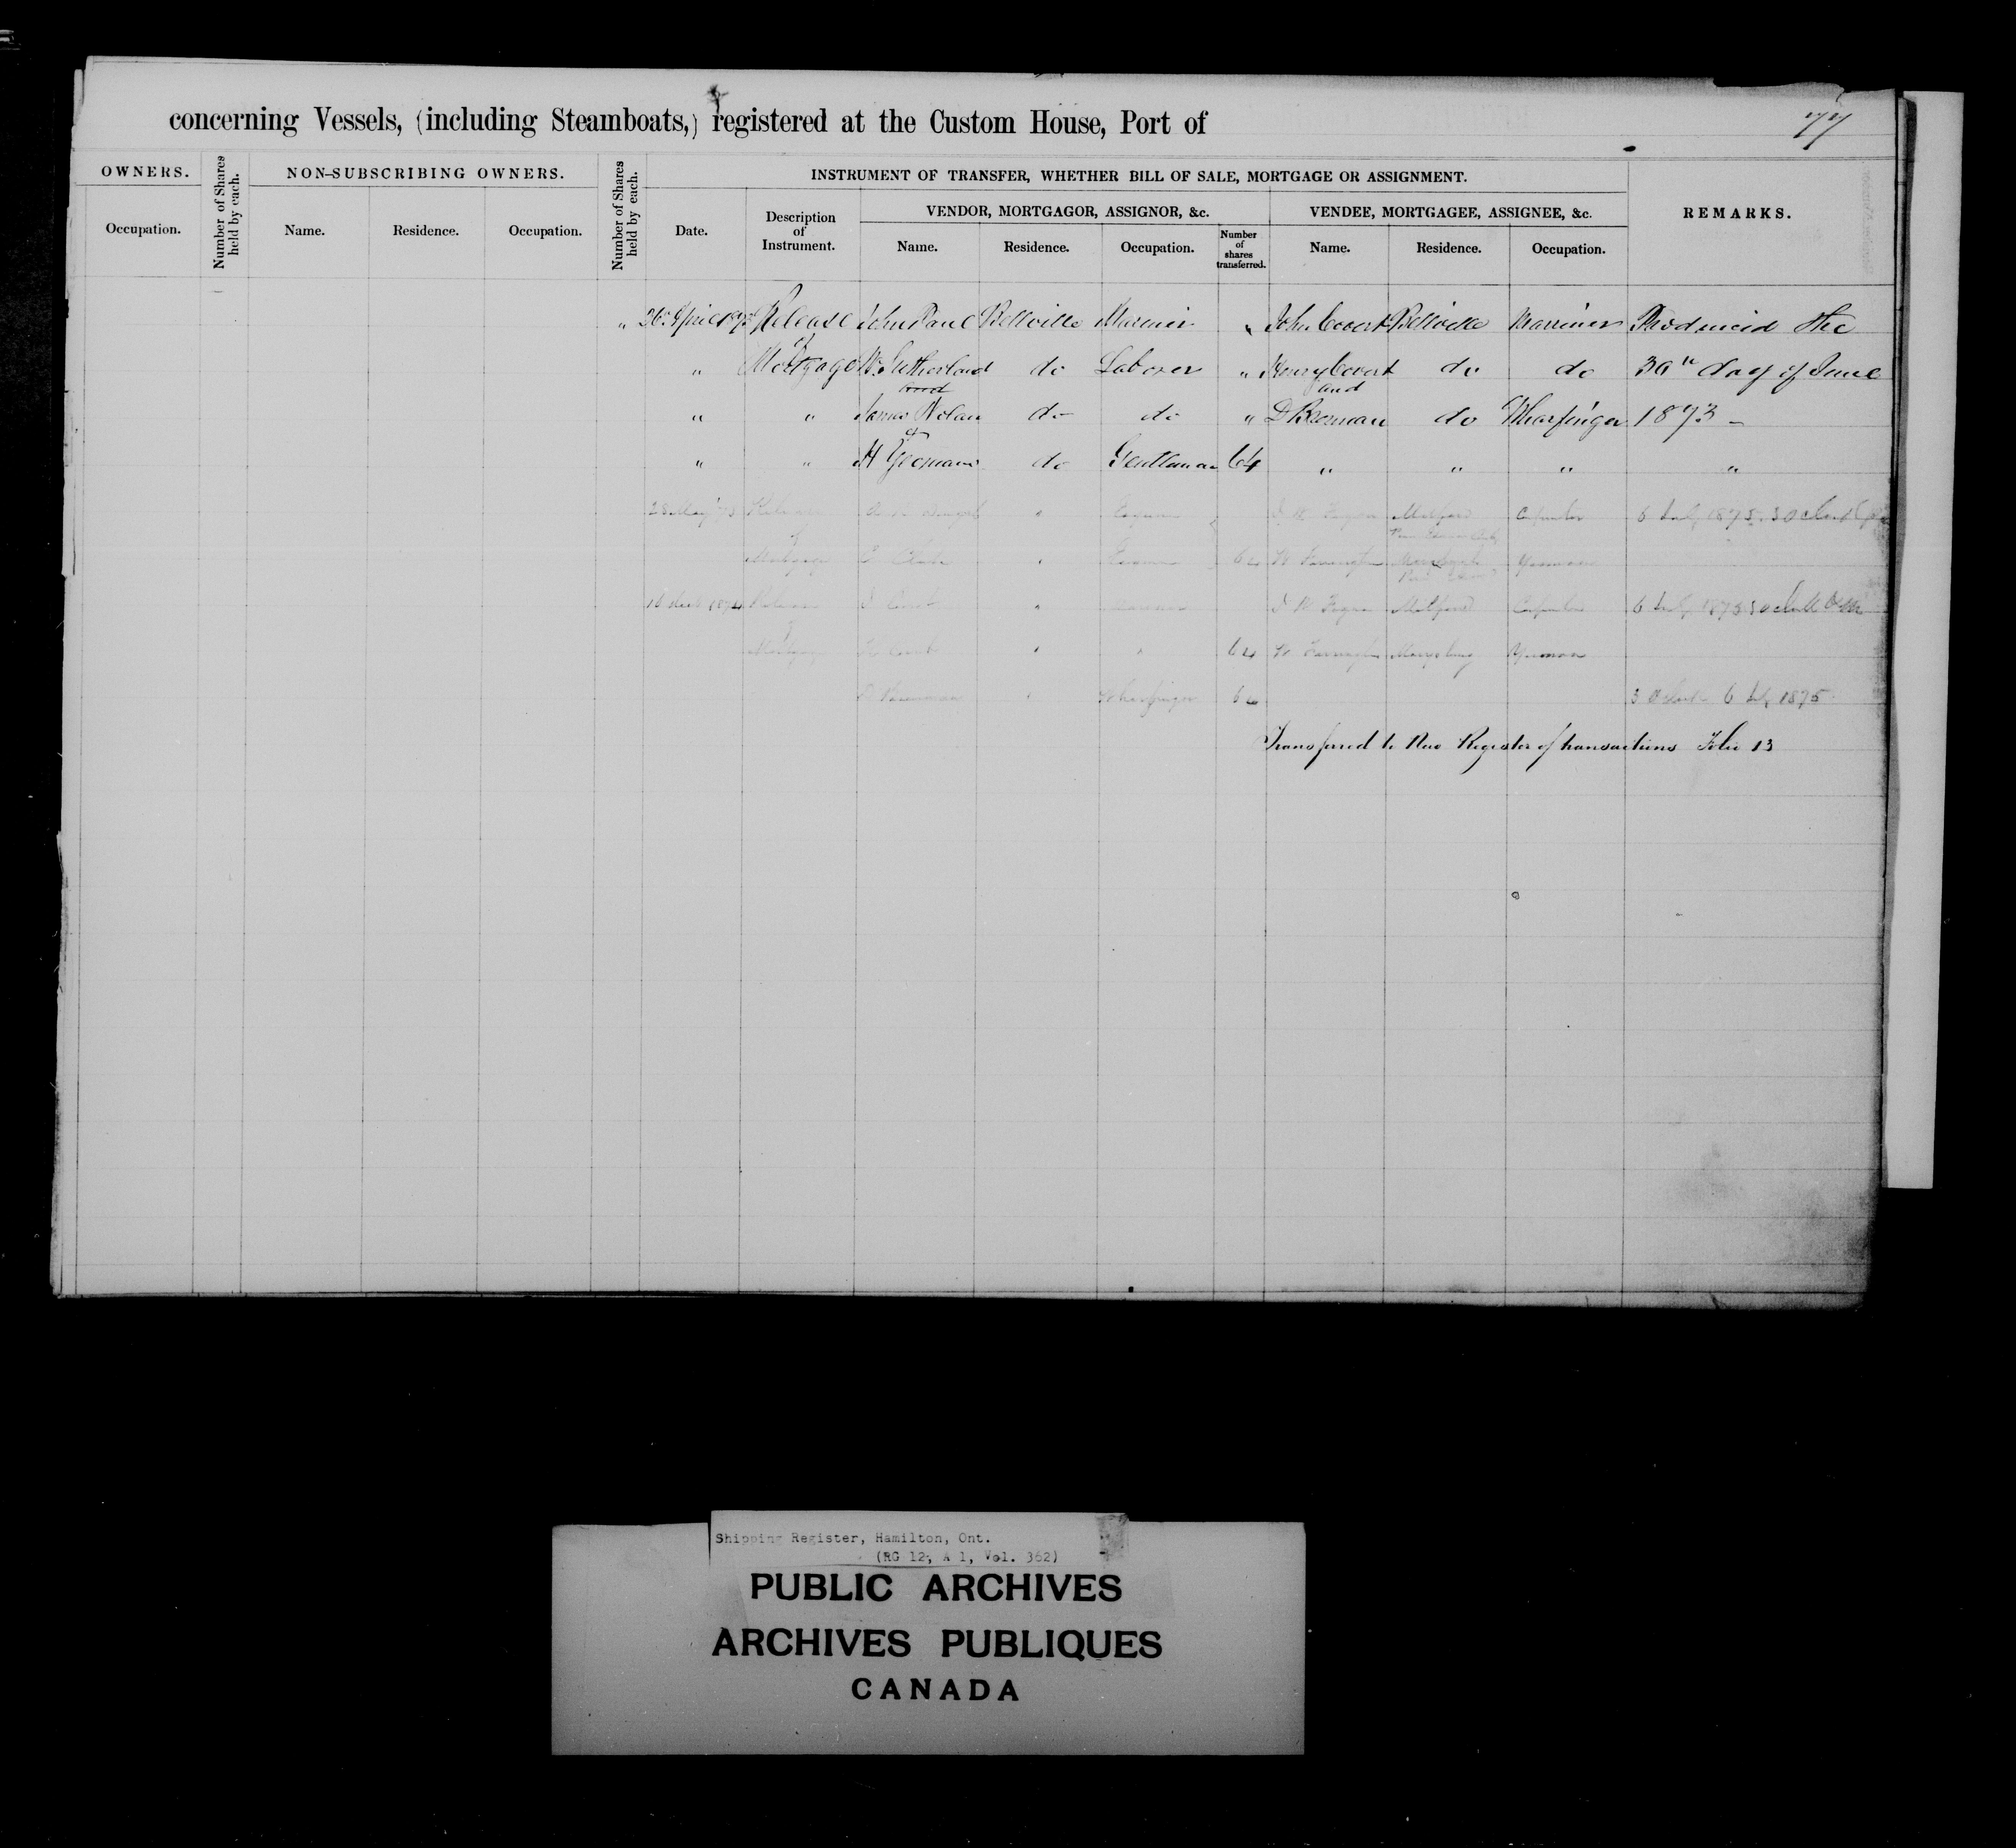 concerning Vessels, (including Steamboats,) registered at the Custom House, Port of
77
OWNERS.
Number of Shares held by each.
NON-SUBSCRIBING OWNERS.
Number of Shares held by each.
INSTRUMENT OF TRANSFER, WHETHER BILL OF SALE, MORTGAGE OR ASSIGNMENT.
REMARKS.
VENDOR, MORTGAGOR, ASSIGNOR, &c.
VENDEE, MORTGAGEE, ASSIGNEE, &c.
Occupation.
Name.
Residence.
Occupation.
Date.
Description of Instrument.
Name.
Residence.
Occupation.
Number of shares transferred.
Name.
Residence.
Occupation.
" 26 April Release John Paul Bellville Mariner " John Covert Bellville Marriner Produced the
of
" Mortgage W. Sutherland do Laborer " Henry Covert do do 30th day of June
and and
" " James Nolan do do " D Brennan do Wharfinger 1873 -
&
" " H Yeomans do Gentleman 64 " " " "
28 May Release " Esquire Milford Carpenter 6 July 1875
of
Mortgage " 64 W Yeoman
Release " Milford Carpenter 6 July 1875
Mortgage " " 64 W Marysburg Yeoman
D Brennan " Wharfinger 64 3 Oclock 6 July 1875
Transferred to New Register of transactions Folio 13
Shipping Register, Hamilton, Ont.
(RG 12, A 1, Vol. 362)
PUBLIC ARCHIVES
ARCHIVES PUBLIQUES
CANADA